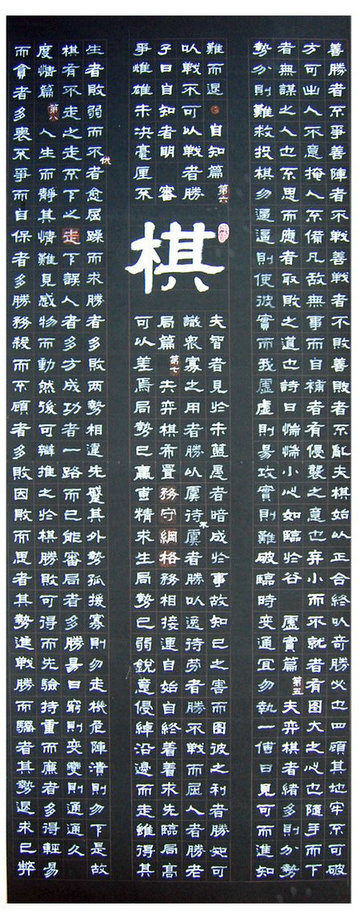 善勝者不爭善陣者不戰善戰者不敗善敗者不亂夫棋始以正合終以奇勝必也四顧其地牢不可破
方可出人不意掩人不備凡敵無事而自補者有侵襲之意也弃小而不就者有圖大之心也隨手而下
者無謀之人也不思而應者取敗之道也詩曰惴惴小心如臨於谷 虛實篇 第五 夫弈棋者緒多則勢
勢分則難救投棋勿逼逼則使彼實而我虛虛則易攻實則難破臨時變通宜勿執一傳曰見可而進知
難而退 自知篇 第六 夫智者見於未萌愚者暗成於事故知己之害而圖彼之利者勝知可
以戰不可以戰者勝識衆寡之用者勝以虞待不虞者勝以逸待勞者勝不戰而屈人者勝老
子曰自知者明 審局篇 第七 夫弈棋布置務守綱格務相接連自始自終着着求先臨局高
爭雌雄未決毫厘不可以差焉局勢已羸專精求生局勢已弱銳意侵綽沿邊而走雖得其
棋
生者敗弱而不伏者愈屈躁而求勝者多敗兩勢相違先蹙其外勢孤援寡則勿走機危陣潰則勿下是故
棋有不走之走不下之走下誤人者多方成功者一路而已能審局者多勝易曰窮則變變則通通久
度情篇 第八 人生而靜其情難見感物而動然後可辯推之於棋勝敗可得而先驗持重而廉者多得輕易
而貪者多喪不爭而自保者多勝務殺而不顧者多敗因敗而思者其勢進戰勝而驕者其勢退求己弊